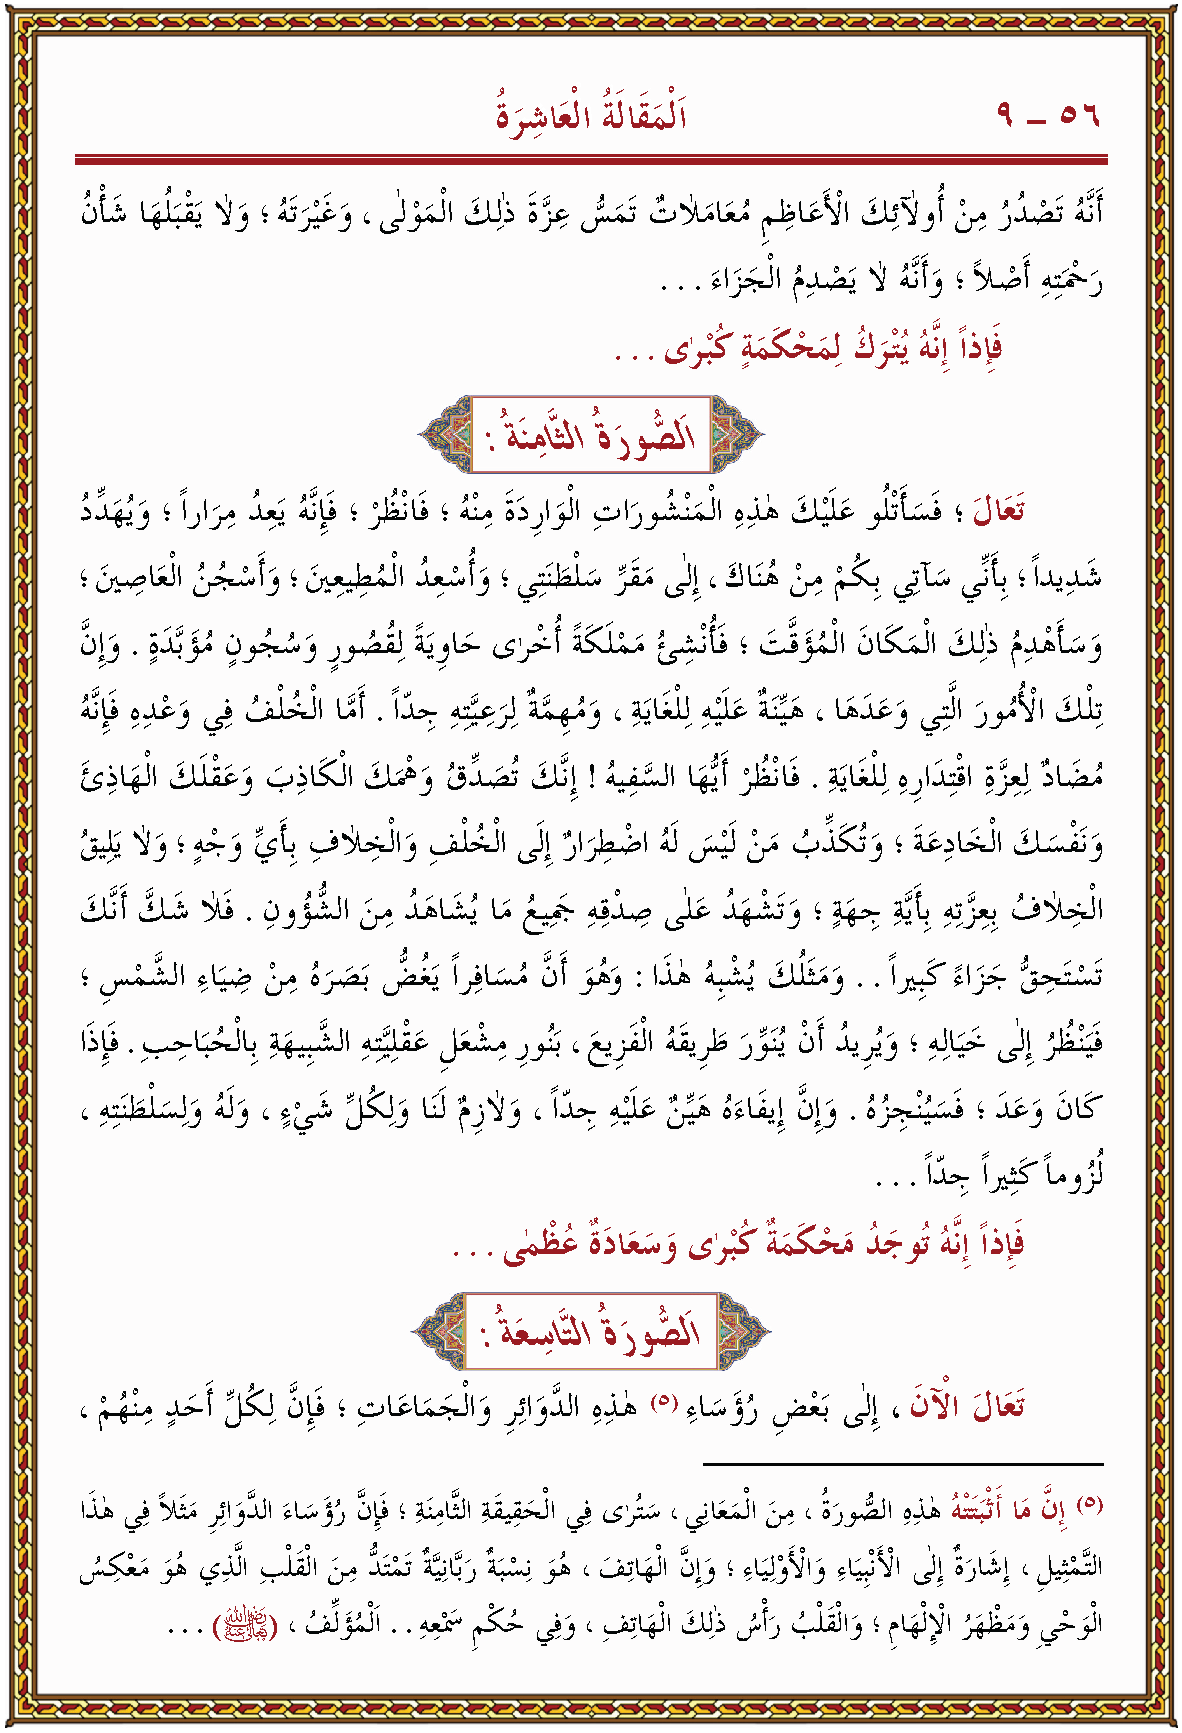 ٥٦ – ٩
اَلْمَقَالَةُ الْعَاشِرَةُ
أَنَّهُ تَصْدُرُ مِنْ أُولٰۤئِكَ الْأَعَاظِمِ مُعَامَلَاتٌ تَمَسُّ عِزَّةَ ذٰلِكَ الْمَوْلٰى ، وَغَيْرَتَهُ ؛ وَلَا يَقْبَلُهَا شَأْنُ
رَحْمَتِهِ أَصْلاً ؛ وَأَنَّهُ لَا يَصْدِمُ الْجَزَاءَ . . .
فَإِذاً إِنَّهُ يُتْرَكُ لِمَحْكَمَةٍ كُبْرٰى . . .
اَلصُّورَةُ الثَّامِنَةُ :
تَعَالَ ؛ فَسَأَتْلُو عَلَيْكَ هٰذِهِ الْمَنْشُورَاتِ الْوَارِدَةَ مِنْهُ ؛ فَانْظُرْ ؛ فَإِنَّهُ يَعِدُ مِرَاراً ؛ وَيُهَدِّدُ
شَدِيداً ؛ بِأَنِّي سَآتِي بِكُمْ مِنْ هُنَاكَ ، إِلٰى مَقَرِّ سَلْطَنَتِي ؛ وَأُسْعِدُ الْمُطِيعِينَ ؛ وَأَسْجُنُ الْعَاصِينَ ؛
وَسَأَهْدِمُ ذٰلِكَ الْمَكَانَ الْمُؤَقَّتَ ؛ فَأُنْشِئُ مَمْلَكَةً أُخْرٰى حَاوِيَةً لِقُصُورٍ وَسُجُونٍ مُؤَبَّدَةٍ . وَإِنَّ
تِلْكَ الْأُمُورَ الَّتِي وَعَدَهَا ، هَيِّنَةٌ عَلَيْهِ لِلْغَايَةِ ، وَمُهِمَّةٌ لِرَعِيَّتِهِ جِدّاً . أَمَّا الْخُلْفُ فِي وَعْدِهِ فَإِنَّهُ
مُضَادٌ لِعِزَّةِ اقْتِدَارِهِ لِلْغَايَةِ . فَانْظُرْ أَيُّهَا السَّفِيهُ ! إِنَّكَ تُصَدِّقُ وَهْمَكَ الْكَاذِبَ وَعَقْلَكَ الْهَاذِئَ
وَنَفْسَكَ الْخَادِعَةَ ؛ وَتُكَذِّبُ مَنْ لَيْسَ لَهُ اضْطِرَارٌ إِلَى الْخُلْفِ وَالْخِلَافِ بِأَيِّ وَجْهٍ ؛ وَلَا يَلِيقُ
الْخِلَافُ بِعِزَّتِهِ بِأَيَّةِ جِهَةٍ ؛ وَتَشْهَدُ عَلٰى صِدْقِهِ جَمِيعُ مَا يُشَاهَدُ مِنَ الشُّؤُونِ . فَلَا شَكَّ أَنَّكَ
تَسْتَحِقُّ جَزَاءً كَبِيراً . . وَمَثَلُكَ يُشْبِهُ هٰذَا : وَهُوَ أَنَّ مُسَافِراً يَغُضُّ بَصَرَهُ مِنْ ضِيَاءِ الشَّمْسِ ؛
فَيَنْظُرُ إِلٰى خَيَالِهِ ؛ وَيُرِيدُ أَنْ يُنَوِّرَ طَرِيقَهُ الْفَزِيعَ ، بِنُورِ مِشْعَلِ عَقْلِيَّتِهِ الشَّبِيهَةِ بِالْحُبَاحِبِ . فَإِذَا
كَانَ وَعَدَ ؛ فَسَيُنْجِزُهُ . وَإِنَّ إِيفَاءَهُ هَيِّنٌ عَلَيْهِ جِدّاً ، وَلَازِمٌ لَنَا وَلِكُلِّ شَيْءٍ ، وَلَهُ وَلِسَلْطَنَتِهِ ،
لُزُوماً كَثِيراً جِدّاً . . .
فَإِذاً إِنَّهُ تُوجَدُ مَحْكَمَةٌ كُبْرٰى وَسَعَادَةٌ عُظْمٰى . . .
اَلصُّورَةُ التَّاسِعَةُ :
تَعَالَ الْآنَ ، إِلٰى بَعْضِ رُؤَسَاءِ (٥) هٰذِهِ الدَّوَائِرِ وَالْجَمَاعَاتِ ؛ فَإِنَّ لِكُلِّ أَحَدٍ مِنْهُمْ ،
(٥) إِنَّ مَا أَثْبَتَتْهُ هٰذِهِ الصُّورَةُ ، مِنَ الْمَعَانِي ، سَتُرٰى فِي الْحَقِيقَةِ الثَّامِنَةِ ؛ فَإِنَّ رُؤَسَاءَ الدَّوَائِرِ مَثَلاً فِي هٰذَا
التَّمْثِيلِ ، إِشَارَةٌ إِلٰى الْأَنْبِيَاءِ وَالْأَوْلِيَاءِ ؛ وَإِنَّ الْهَاتِفَ ، هُوَ نِسْبَةٌ رَبَّانِيَّةٌ تَمْتَدُّ مِنَ الْقَلْبِ الَّذِي هُوَ مَعْكِسُ
الْوَحْيِ وَمَظْهَرُ الْإِلْهَامِ ؛ وَالْقَلْبُ رَأْسُ ذٰلِكَ الْهَاتِفِ ، وَفِي حُكْمِ سَمْعِهِ . . اَلْمُؤَلِّفُ ، (رضي الله تعالى عنه) . . .